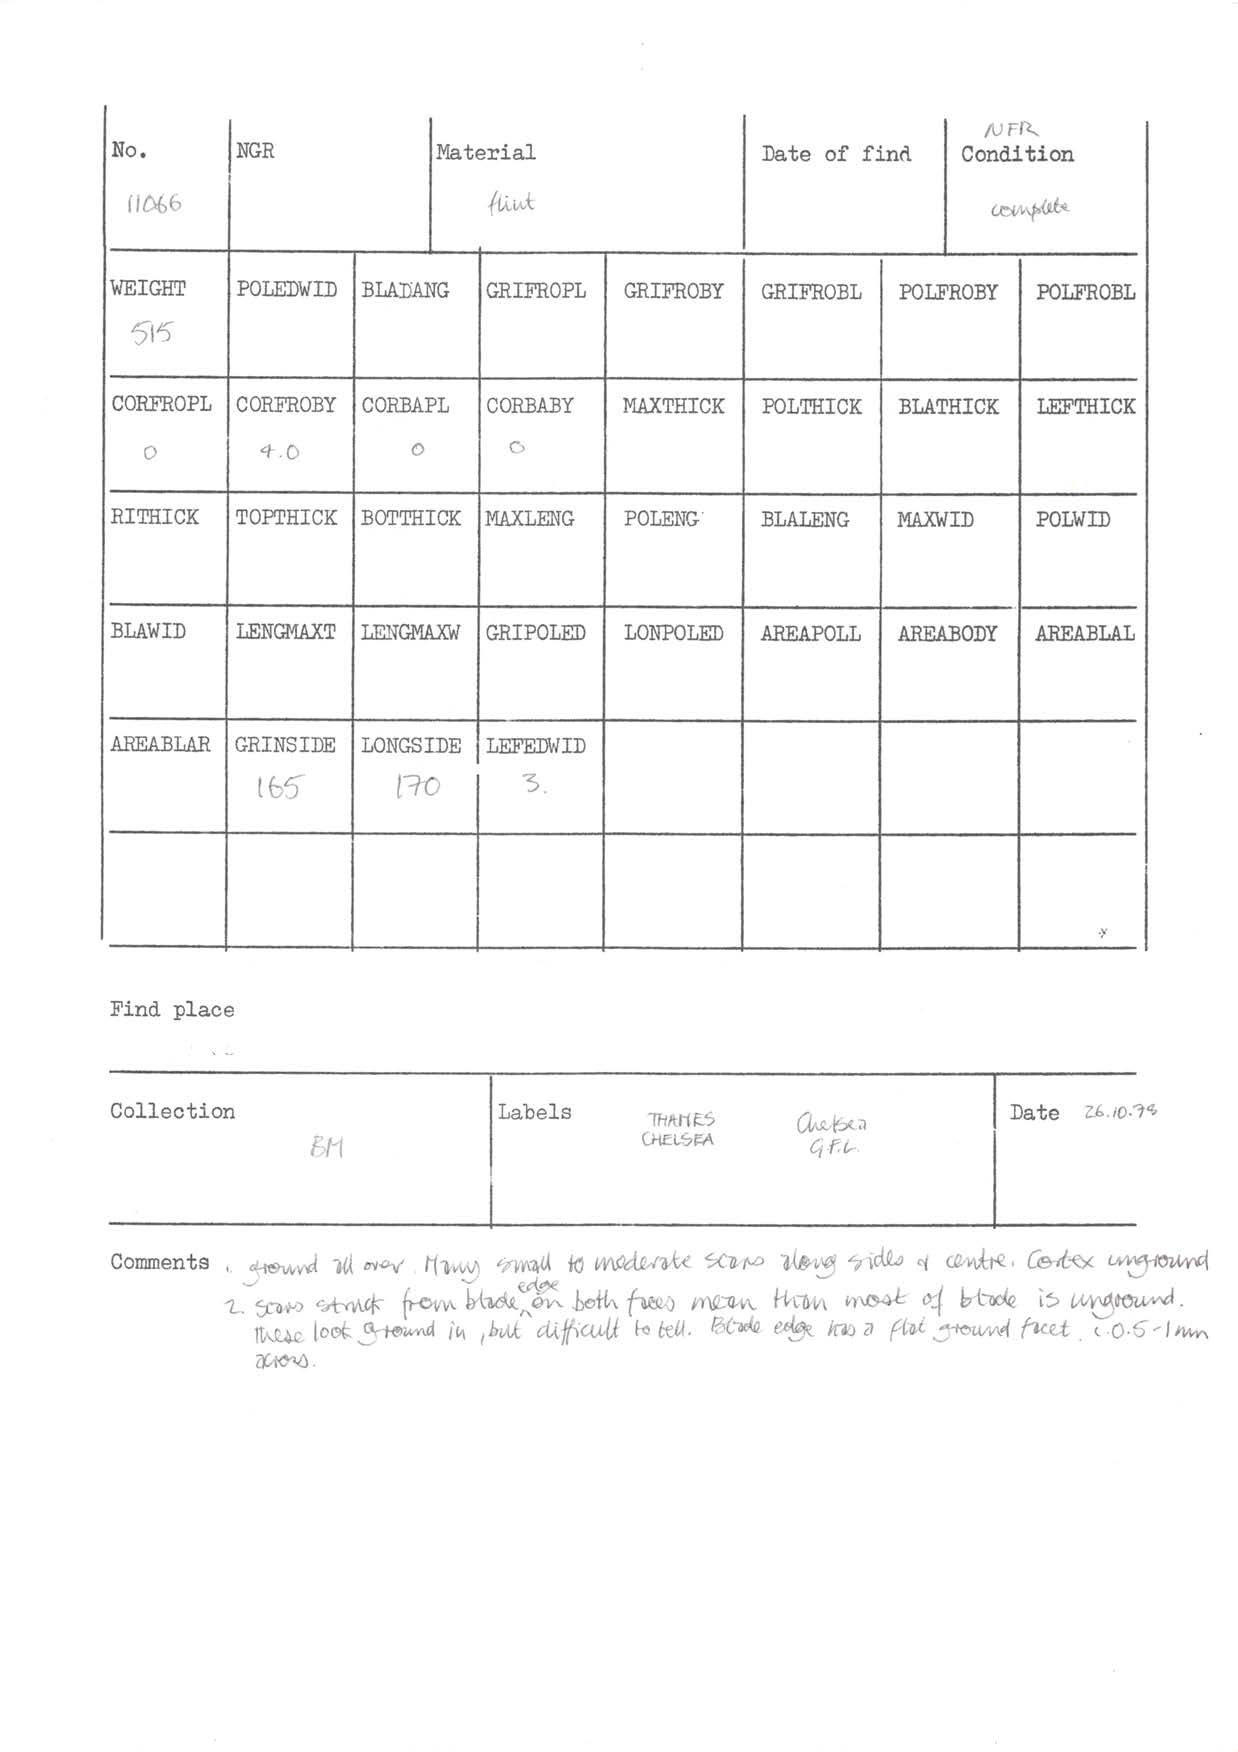 NFR
No. NGR Material Date of find Condition
11066 flint complete
WEIGHT POLEDWID BLADANG GRIFROPL GRIFROBY GRIFROBL POLFROBY POLFROBL
515
CORFROPL CORFROBY CORBAPL CORBABY MAXTHICK POLTHICK BLATHICK LEFTHICK
0 4.0 0 0
RITHICK TOPTHICK BOTTHICK MAXLENG POLENG BLALENG MAXWID POLWID
BLAWID LENGMAXT LENGMAXW GRIPOLED LONPOLED AREAPOLL AREABODY AREABLAL
AREABLAR GRINSIDE LONGSIDE LEFEDWID
165 170 3.
Find place
Collection Labels THAMES Chelsea Date 26.10.78
BM CHELSEA G.F.L.
Comments 1. ground all over. Many small to moderate scars along sides & centre. Cortex unground
edge
2. scars struck from blade on both faces mean than most of blade is unground.
These look ground in, but difficult to tell. Blade edge has a flat ground facet c. 0.5-1mm
across.